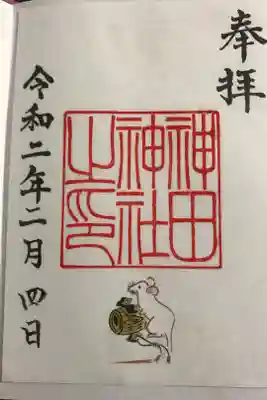 奉拝
神田
神社
之印
令和二年二月四日